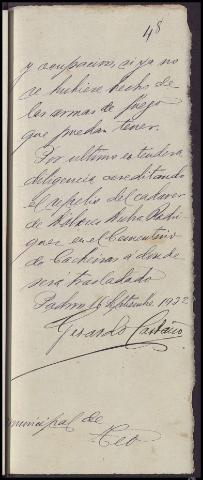 48
y ocupacion si ya no
se hubiere hecho de
las armas de fuego
que puedan tener.
Por ultimo estendera
diligencia acreditando
el sepelio del cadaver
de Dolores Rubo Rodri
guez en el Cementerio
de Cacheiras á donde
sera trasladado
Padron 16 Septiembre 1932
Gerardo Castaño
municipal de
Teo